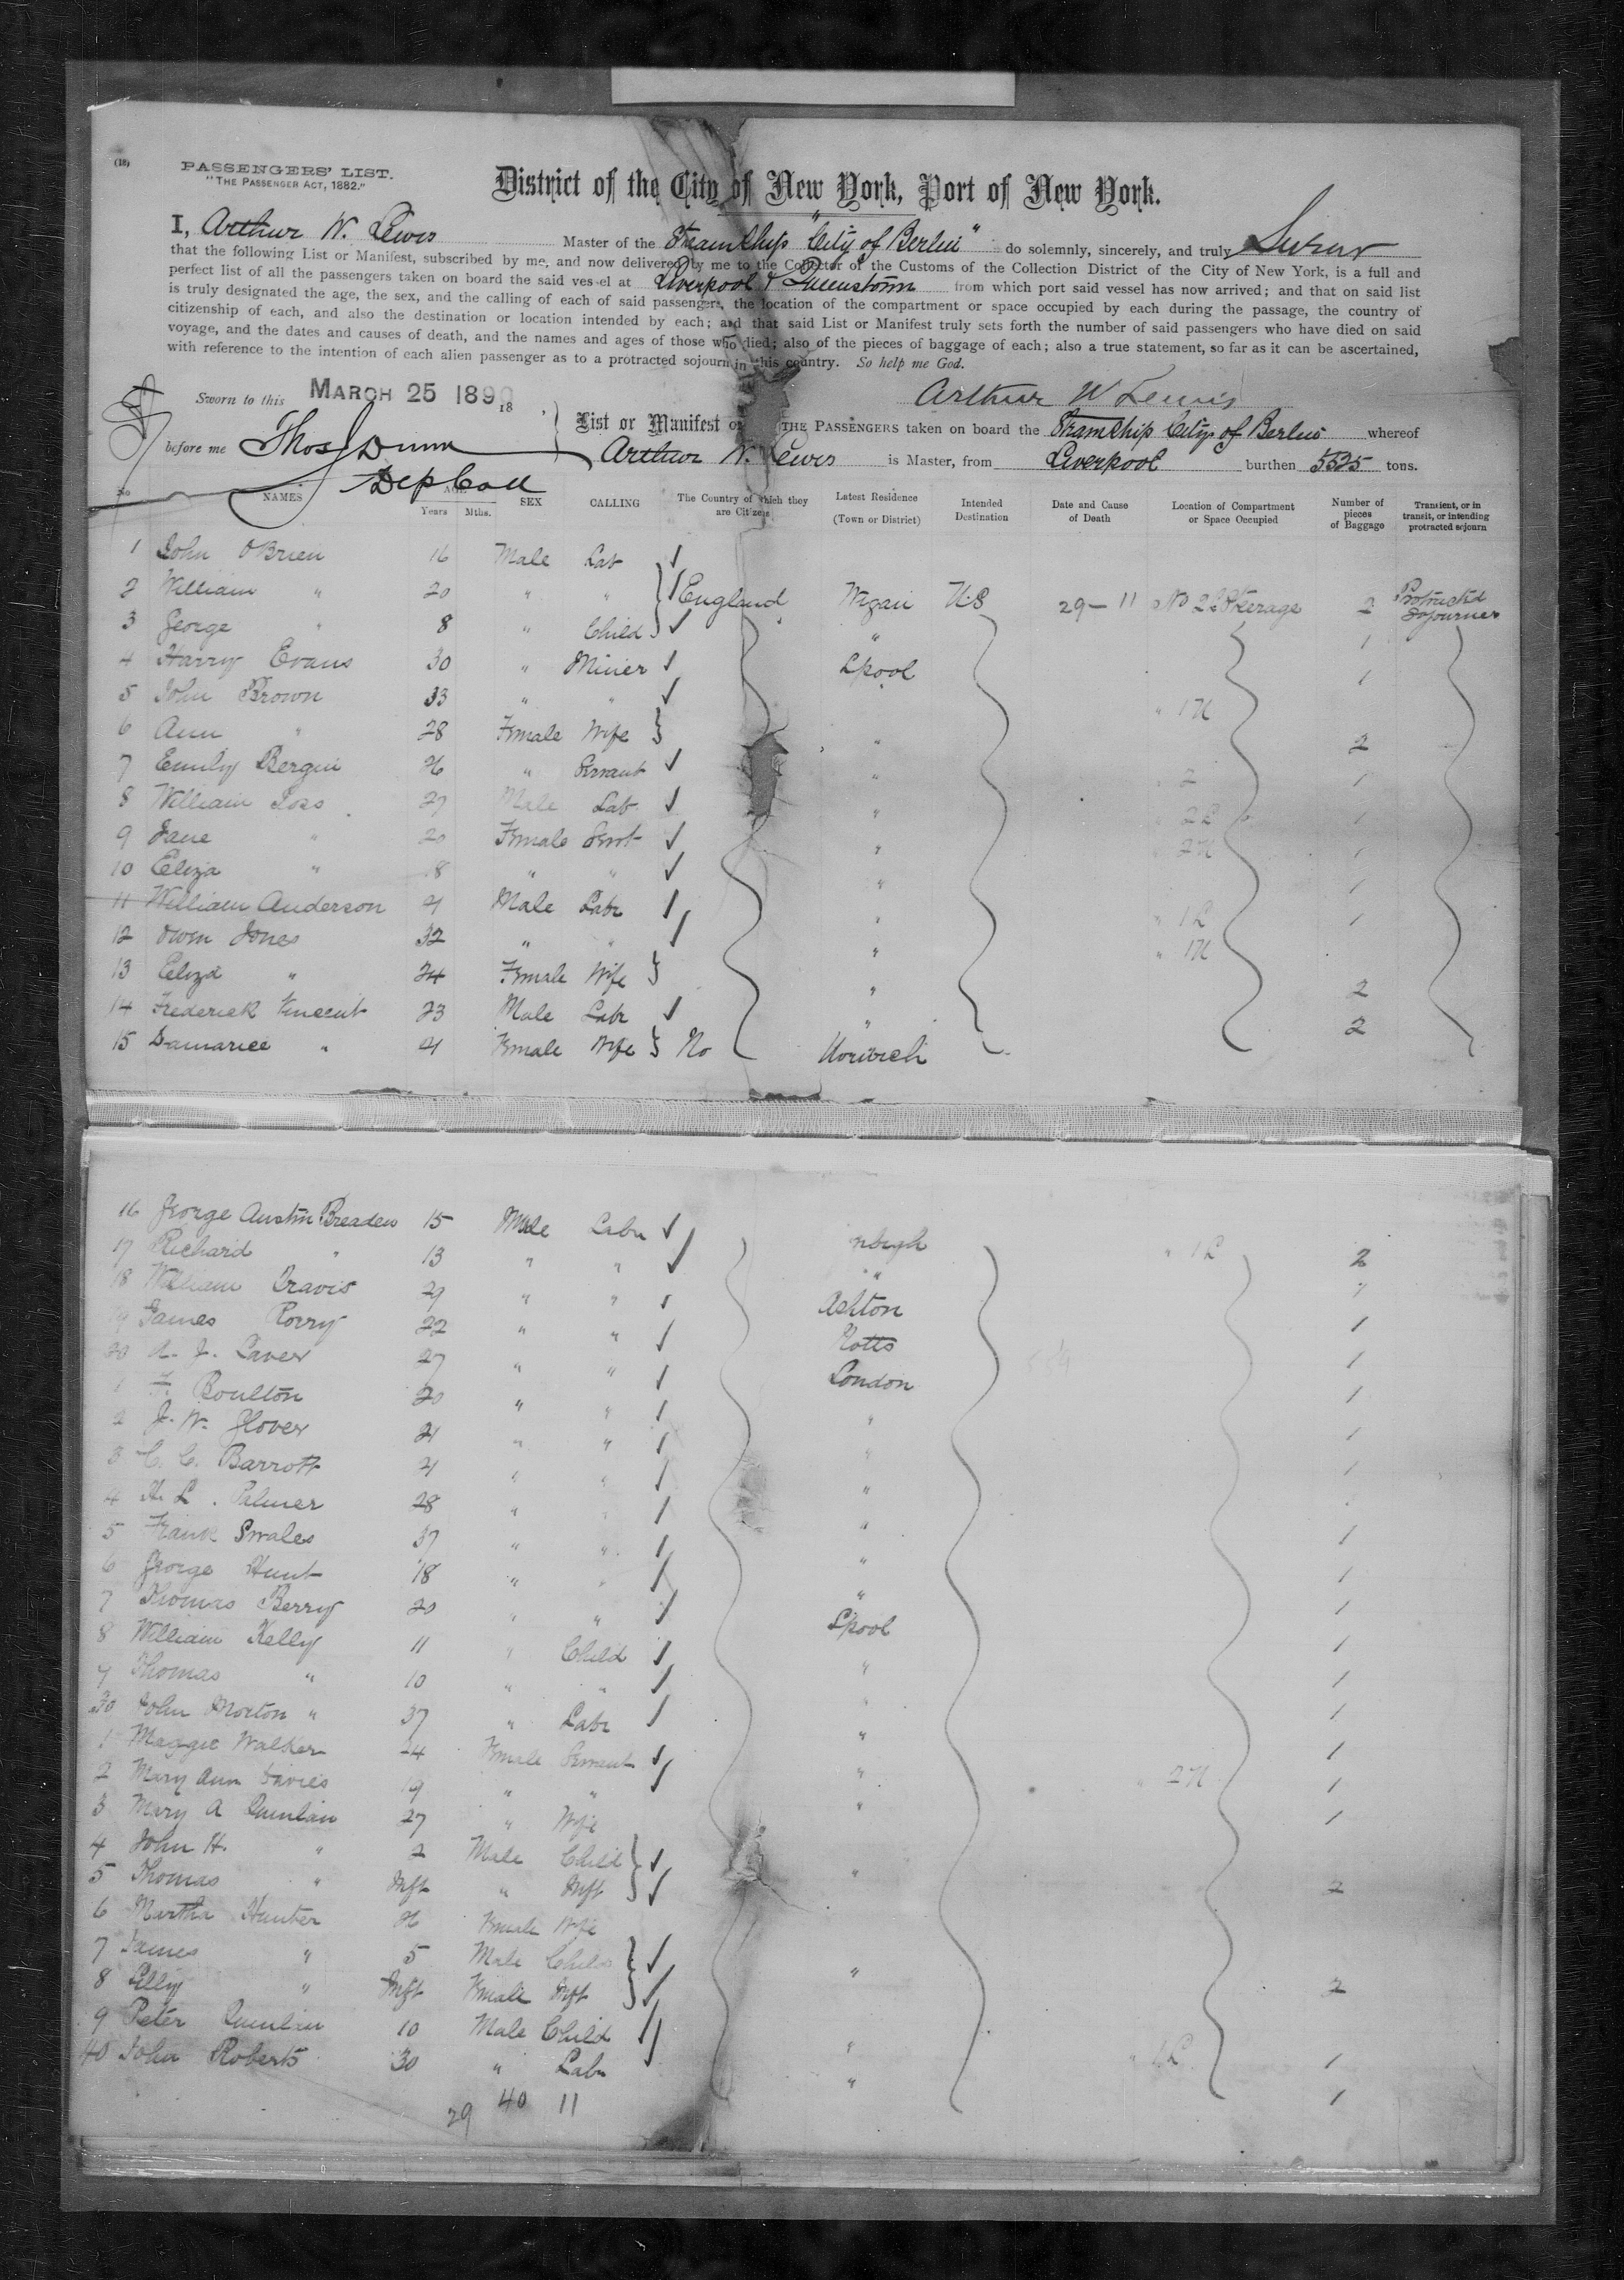 (18)
PASSENGERS' LIST.
"THE PASSENGER ACT, 1882."
District of the City of New York, Port of New York.
I, Arthur W. Lewis Master of the Steamship "City of Berlin" do solemnly, sincerely, and truly Swear
that the following List or Manifest, subscribed by me, and now delivered by me to the Collector of the Customs of the Collection District of the City of New York, is a full and
perfect list of all the passengers taken on board the said vessel at Liverpool & Queenstown from which port said vessel has now arrived; and that on said list
is truly designated the age, the sex, and the calling of each of said passengers, the location of the compartment or space occupied by each during the passage, the country of
citizenship of each, and also the destination or location intended by each; and that said List or Manifest truly sets forth the number of said passengers who have died on said
voyage, and the dates and causes of death, and the names and ages of those who died; also of the pieces of baggage of each; also a true statement, so far as it can be ascertained,
with reference to the intention of each alien passenger as to a protracted sojourn in this country. So help me God.
Sworn to this MARCH 25 1890 18
Arthur W Lewis
before me Thos J Dunn
Dep Coll
List or Manifest OF THE PASSENGERS taken on board the Steamship City of Berlin whereof
Arthur W. Lewis is Master, from Liverpool burthen 5525 tons.
No NAMES AGE Years Mths. SEX CALLING The Country of which they are Citizens Latest Residence (Town or District) Intended Destination Date and Cause of Death Location of Compartment or Space Occupied Number of pieces of Baggage Transient, or in transit, or intending protracted sojourn
1 John O'Brien 16 Male Lab
2 William " 20 " " England Wigan U.S 29-11 No 2 Steerage 2 Protracted Sojourner
3 George " 8 " Child " 1
4 Harry Evans 30 " Miner Lpool 1
5 John Brown 33 " " " 1
6 Ann " 28 Female Wife " 2
7 Emily Bergin 26 " Servant " 2 1
8 William Ross 27 Male Lab " 1
9 Jane " 20 Female Servt " 1
10 Eliza " 18 " " " 1
11 William Anderson 21 Male Labr " 1
12 Owen Jones 32 " " "
13 Eliza " 24 Female Wife " 2
14 Frederick Vincent 23 Male Labr " 2
15 " 21 Female Wife No Norwich
16 George Austin Breaden 15 Male Labr 2
17 Richard " 13 " " "
18 William Travis 29 " " Ashton 1
19 James Rorry 22 " " Notts 1
20 Laver 27 " " London 1
1 F. Boulton 20 " " " 1
2 J. W. Glover 21 " " " 1
3 C. C. Barrott 21 " " "
4 H. L. Palmer 28 " " " 1
5 Frank Swales 37 " " " 1
6 George Hunt 18 " " " 1
7 Thomas Berry 20 " " Lpool 1
8 William Kelly 11 " Child " 1
9 Thomas " 10 " " " 1
30 John Morton " 37 " Labr " 1
1 Maggie Walker 24 Female Servant " 1
2 Mary Ann Davies 19 " " " 1
3 Mary A Quinlan 27 " Wife
4 John H. " 2 Male Child "
5 Thomas " Inft " Inft 2
6 Martha Hunter 26 Female Wife
7 James " 5 Male Child "
8 Lilly " Inft Female Inft 2
9 Peter Quinlan 10 Male Child " 1
40 John Roberts 30 " Labr " 1
29 40 11